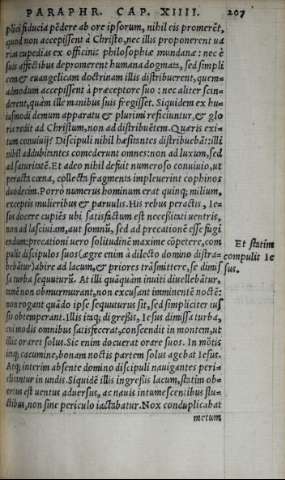 PARAPHR. CAP. XIIII. 207
plici fiducia pēdere ab ore ipsorum, nihil eis promerēt,
quod non accepissent à Christo, nec illis proponerent va
ria cupedia ex officina philosophiæ mundanæ: nec è
suis affectibus depromerent humana dogmata, sed simpli
cem & euangelicam doctrinam illis distribuerent, quem
admodum accepissent à præceptore suo: nec aliter scin
derent, quàm ille manibus suis fregisset. Siquidem ex hu
iusmodi demum apparatu & plurimi reficiuntur, & glo
ria redit ad Christum, non ad distribuētem. Quæris exi
tum conuiuij? Discipuli nihil hæsitantes distribuebāt: illi
nihil addubitantes comederunt omnes: non ad luxum, sed
ad saturitatē. Et adeo nihil defuit numeroso conuiuio, ut
peracta cœna, collecta fragmenta impleuerint cophinos
duodecim. Porrò numerus hominum erat quinq; milium,
exceptis mulieribus & paruulis. His rebus peractis, Ie-
sus docere cupiēs ubi satisfactum est necessitati uentris,
non ad lasciuiam, aut somnū, sed ad precationē esse fugi
endum: precationi uero solitudinē maxime cōpetere, com
pulit discipulos suos (ægre enim à dilecto domino distra-
hebātur) abire ad lacum, & priores trāsmittere, se dimis
sa turba sequuturū. At illi quāquàm inuiti diuellebātur,
tamē non obmurmurant, non excusant imminentē noctē:
non rogant quādo ipse sequuturus sit, sed simpliciter ius
su obtemperant. Illis inq; digressis, Iesus dimissa turba,
cui modis omnibus satisfecerat, conscendit in montem, ut
illic oraret solus. Sic enim docuerat orare suos. In mōtis
inq; cacumine, bonam noctis partem solus agebat Iesus.
Atq; interim absente domino discipuli nauigantes peri-
clitantur in undis. Siquidē illis ingressis lacum, statim ob-
ortus est uentus aduersus, ac nauis intumescentibus flu-
ctibus, non sine periculo iactabatur. Nox conduplicabat
metum
Et statim
compulit Ie
sus.